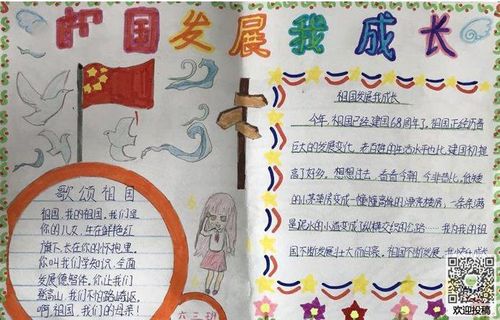 祖国发展我成长
歌颂祖国
祖国,我的祖国,我们是
你的儿女,生在鲜艳红
旗下,长在你的怀抱里,
你叫我们学知识,全面
发展德智体,你让我们
登高山,我们不怕路崎岖,
啊,祖国,我们的母亲!
六三班
祖国发展我成长
今年,祖国已经建国68周年了,祖国正经历着
巨大的发展变化,老百姓的生活水平也比建国初提
高了好多,想想过去,看看今朝,今非昔比,低矮
的小茅草房变成一幢幢高大的漂亮楼房,一条条
起水的小道变成了纵横交织的公路
国不断发展壮大而自豪,祖国不断发展,
欢迎投稿